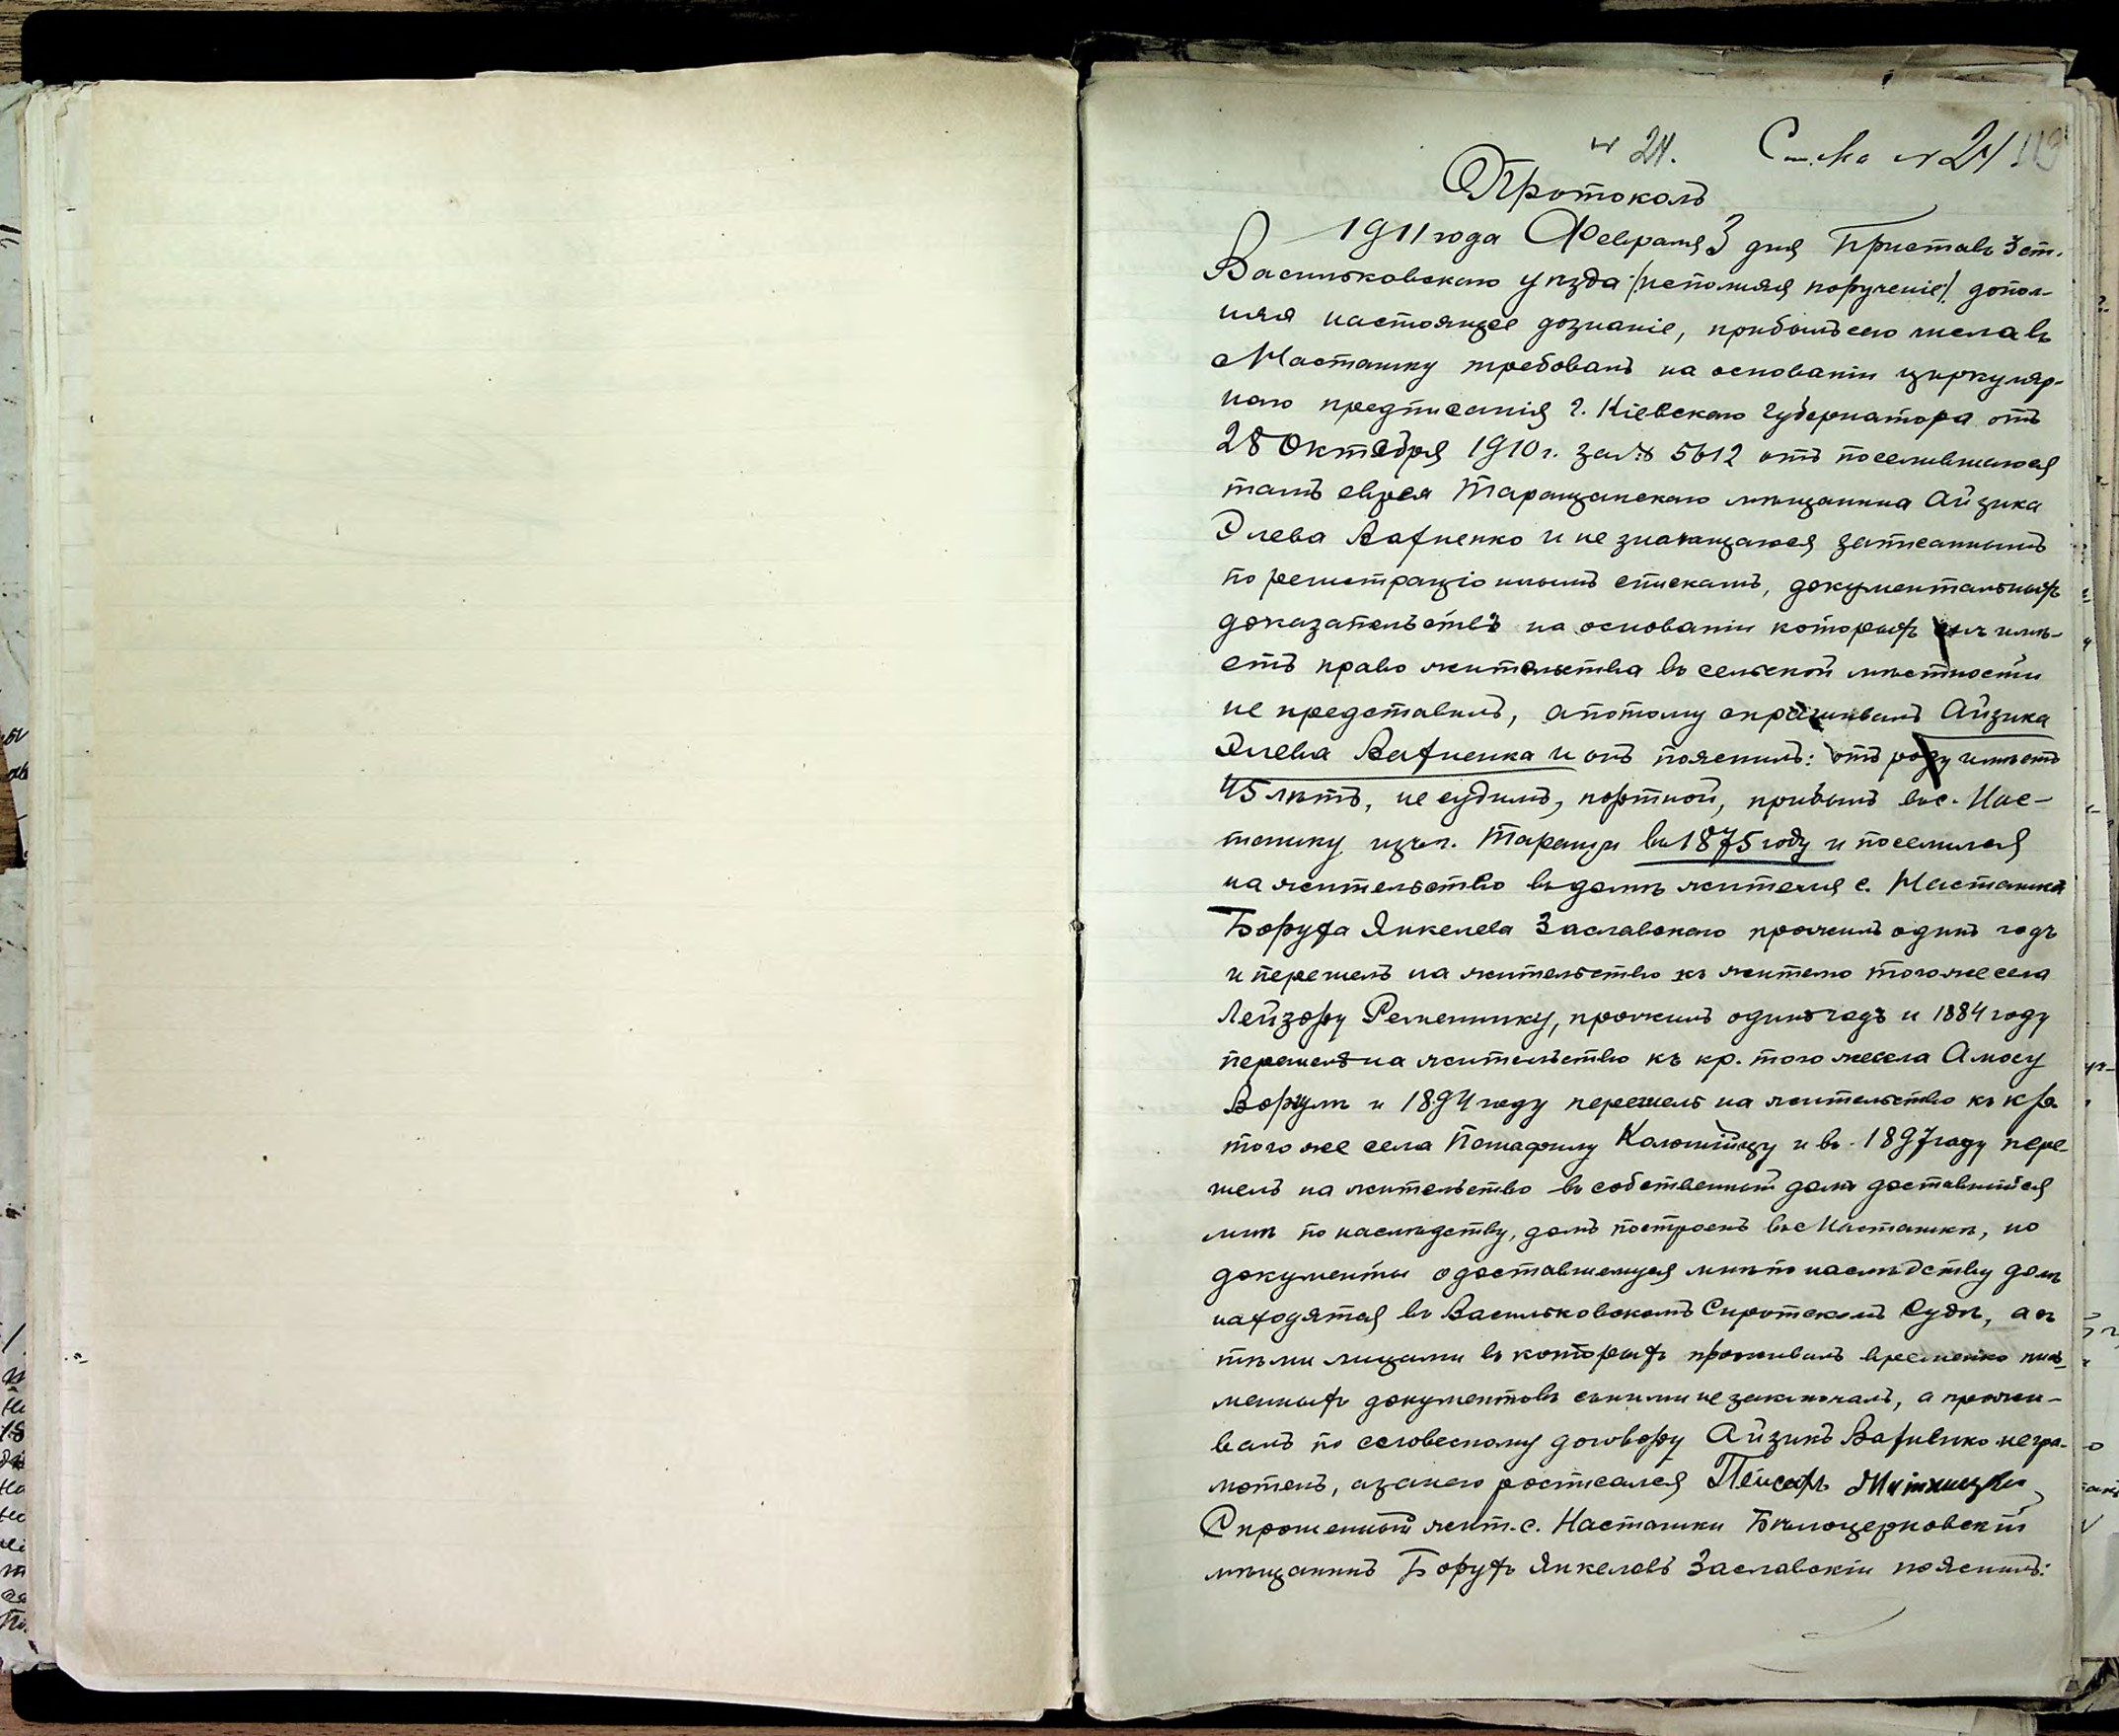 № 24. № 24 119
Протоколъ
1911 года Февраля 3 дня Приставъ 3 ст.
Васильковскаго уѣзда /исполняя порученіе/ допол-
няя настоящее дознаніе, прибылъ сего числа въ
Насташку требовалъ на основаніи циркуляр-
наго предписанія г. Кіевскаго Губернатора отъ
28 Октября 1910 г. за № 5612 отъ поселившагося
тамъ еврея Таращанскаго мѣщанина Айзика
Элева Вахненко и не значащагося записаннымъ
по регистраціоннымъ спискамъ, документальныхъ
доказательствъ на основаніи которыхъ онъ имѣ-
етъ право жительства въ сельской мѣстности
не представилъ, а потому опрашивалъ Айзика
Элева Вахненка и онъ пояснилъ: отъ роду имѣетъ
45 лѣтъ, не судимъ, портной, прибылъ въ с. Нас-
ташку изъ г. Таращи въ 1875 году и поселился
на жительство въ домѣ жителя с. Насташка
Боруха Янкелева Заславскаго прожилъ одинъ годъ
и перешелъ на жительство къ жителю того же села
Лейзору Ременнику, прожилъ одинъ годъ и 1884 году
перешелъ на жительство къ кр. того же села Амосу
и 1894 году перешелъ на жительство къ кр.
того же села Коломійцу и въ 1897 году пере-
шелъ на жительство въ собственный домъ доставшійся
мнѣ по наслѣдству, домъ построенъ въ с Насташкѣ, но
документы о доставшемуся мнѣ по наслѣдству домѣ
находятся въ Васильковскомъ Сиротскомъ Судѣ, а съ
тѣми лицами въ которыхъ проживалъ временно пись-
менныхъ документовъ съ ними не заключалъ, а прожи-
валъ по словесному договору Айзикъ Вахненко негра-
мотенъ, а за него росписался Пейсахъ
Спрошенный жит. с. Насташки Бѣлоцерковскій
мѣщанинъ Борухъ Янкелевъ Заславскій пояснилъ: